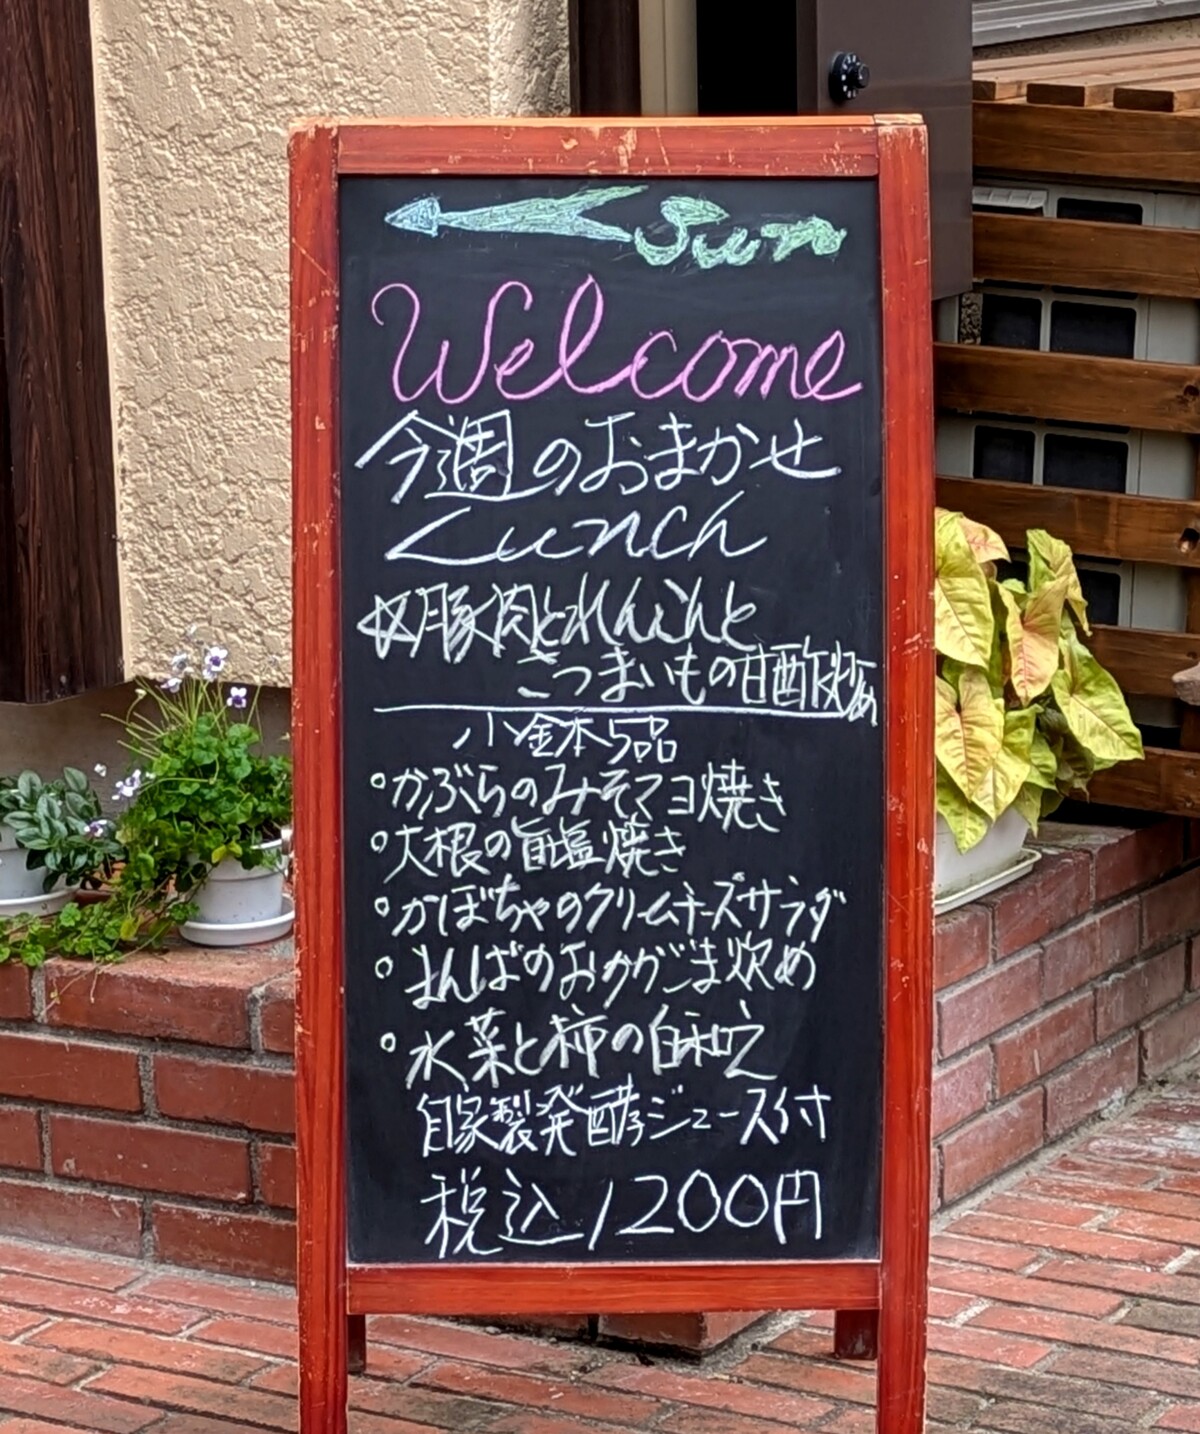 Sun
Welcome
今週のおまかせ
Lunch
豚肉とれんこんと
さつまいもの甘酢炒め
小鉢5品
○かぶらのみそマヨ焼き
○大根の旨塩焼き
○かぼちゃのクリームチーズサラダ
○まんばのおかかごま炊め
○水菜と柿の白和え
自家製発酵ジュース付
税込1200円